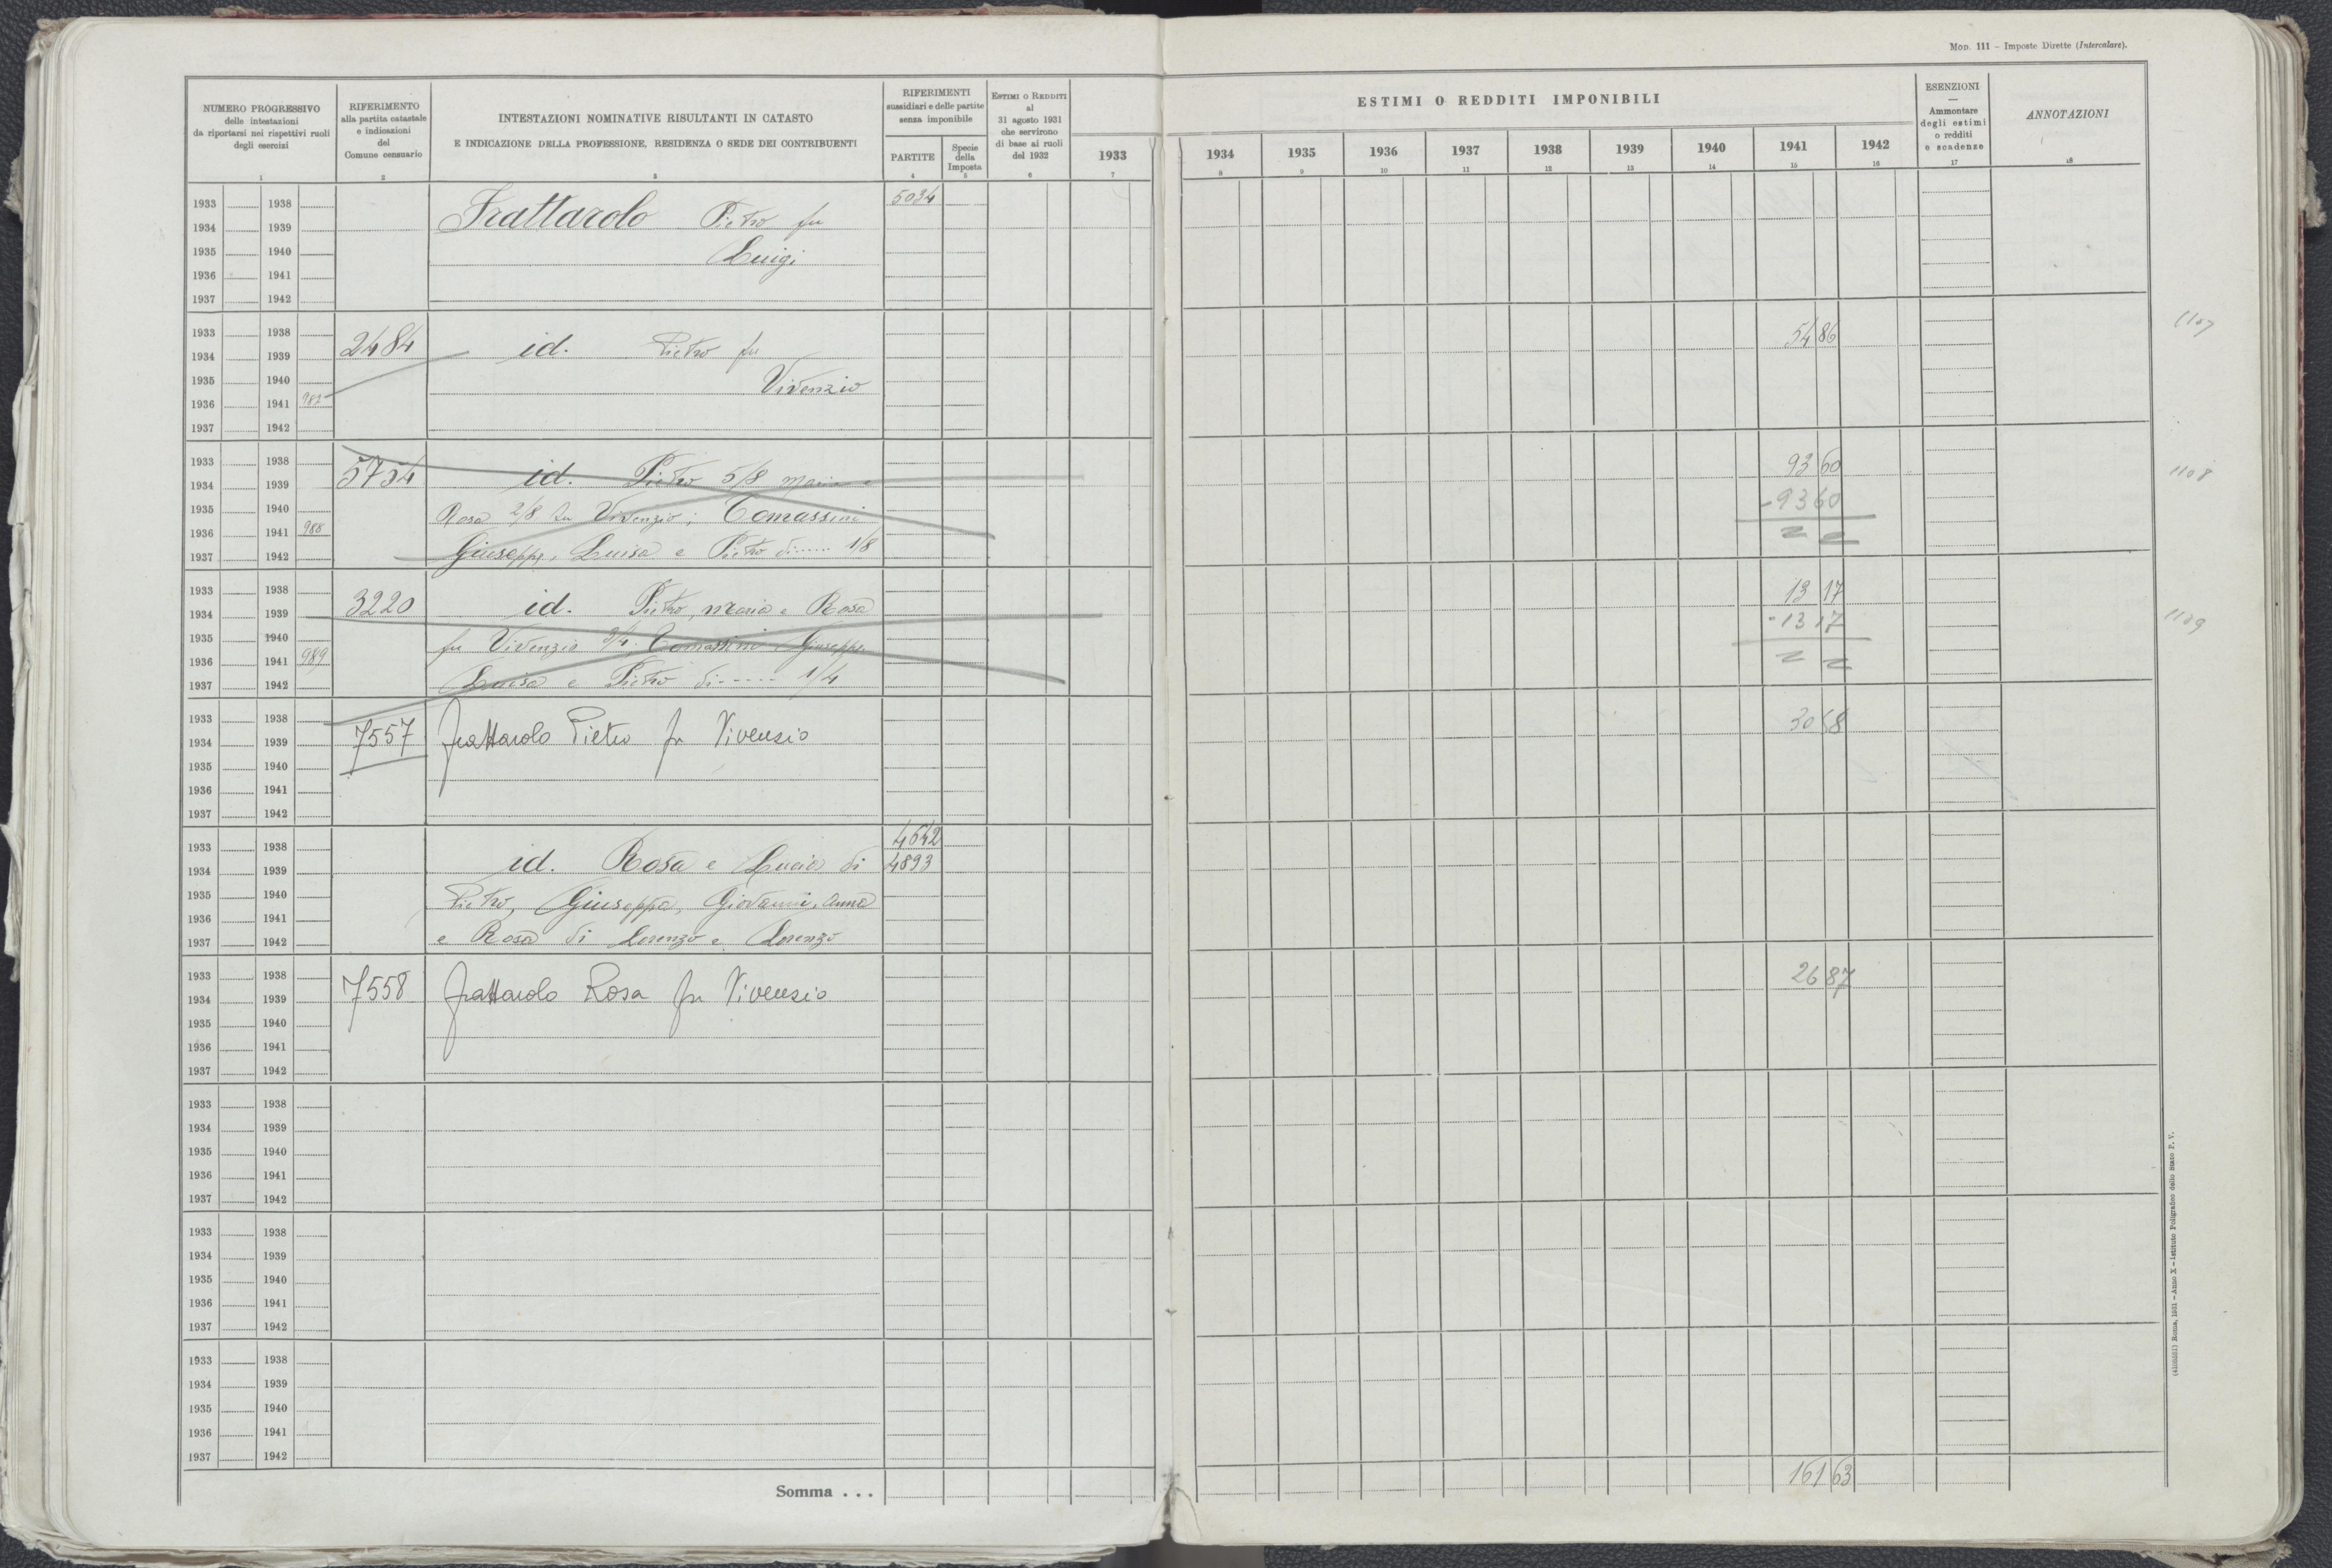 Mod. 111 - Imposte Dirette (Intercalare).
NUMERO PROGRESSIVO
delle intestazioni
da riportarsi nei rispettivi ruoli
degli esercizi
1
RIFERIMENTO
alla partita catastale
e indicazioni
del
Comune censuario
2
INTESTAZIONI NOMINATIVE RISULTANTI IN CATASTO
E INDICAZIONE DELLA PROFESSIONE, RESIDENZA O SEDE DEI CONTRIBUENTI
3
RIFERIMENTI
sussidiari e delle partite
senza imponibile
PARTITE
4
Specie
della
Imposta
5
Estimi o Redditi
al
31 agosto 1931
che servirono
di base ai ruoli
del 1932
6
ESTIMI O REDDITI IMPONIBILI
1933 1934 1935 1936 1937 1938 1939 1940 1941 1942
7 8 9 10 11 12 13 14 15 16
ESENZIONI
—
Ammontare
degli estimi
o redditi
e scadenze
17
ANNOTAZIONI
18
1933 1938 5034
1934 1939 Frattarolo Pietro fu
1935 1940 Luigi
1936 1941
1937 1942
1933 1938 5486 1107
1934 1939 2484 id. Pietro fu
1935 1940 Vivenzio
1936 1941 987
1937 1942
1933 1938 9360 1108
1934 1939 5754 id. Pietro 5/8 Maria e
1935 1940 Rosa 2/8 fu Vivenzio; Tomassini -9360
1936 1941 988
1937 1942 Giuseppe, Luisa e Pietro di..... 1/8
1933 1938 1317
1934 1939 3220 id. Pietro, Maria e Rosa -1317 1109
1935 1940 fu Vivenzio 3/4, Tomassini Giuseppe
1936 1941 989
1937 1942 Luisa e Pietro di..... 1/4
1933 1938 3058
1934 1939 7557 Frattarolo Pietro fu Vivenzio
1935 1940
1936 1941
1937 1942
1933 1938 4642
1934 1939 id. Rosa e Lucia di 4893
1935 1940 Pietro, Giuseppa, Giovanni, Anna
1936 1941
1937 1942 e Rosa di Lorenzo e Lorenzo
1933 1938 2687
1934 1939 7558 Frattarolo Rosa fu Vivenzio
1935 1940
1936 1941
1937 1942
1933 1938
1934 1939
1935 1940
1936 1941
1937 1942
1933 1938
1934 1939
1935 1940
1936 1941
1937 1942
1933 1938
1934 1939
1935 1940
1936 1941
1937 1942
Somma . . . 16163
(4105551) Roma, 1931 - Anno X - Istituto Poligrafico dello Stato P. V.